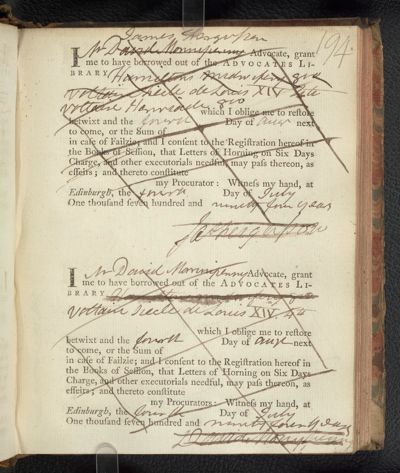 James Ferguson
194
I Mr David Monnypenny Advocate, grant
me to have borrowed out of the ADVOCATES LI-
BRARY Hamiltons midwifery 8vo
Voltaire Siecle de Louis XIV 4to
Voltaire Henriade 8vo
which I oblige me to restore
betwixt and the fourth Day of augt next
to come, or the Sum of
in case of Failzie; and I consent to the Registration hereof in
the Books of Session, that Letters of Horning on Six Days
Charge, and other executorials needful, may pass thereon, as
effeirs; and thereto constitute
my Procurator: Witness my hand, at
Edinburgh, the fourth Day of July
One thousand seven hundred and ninety four years
Ja Ferguson
I Mr David Monnypenny Advocate, grant
me to have borrowed out of the ADVOCATES LI-
BRARY
Voltaire Siecle de Louis XIV 4to
which I oblige me to restore
betwixt and the fourth Day of augt next
to come, or the Sum of
in case of Failzie; and I consent to the Registration hereof in
the Books of Session, that Letters of Horning on Six Days
Charge, and other executorials needful, may pass thereon, as
effeirs; and thereto constitute
my Procurators: Witness my hand, at
Edinburgh, the fourth Day of July
One thousand seven hundred and ninety four years
David Monnypenny